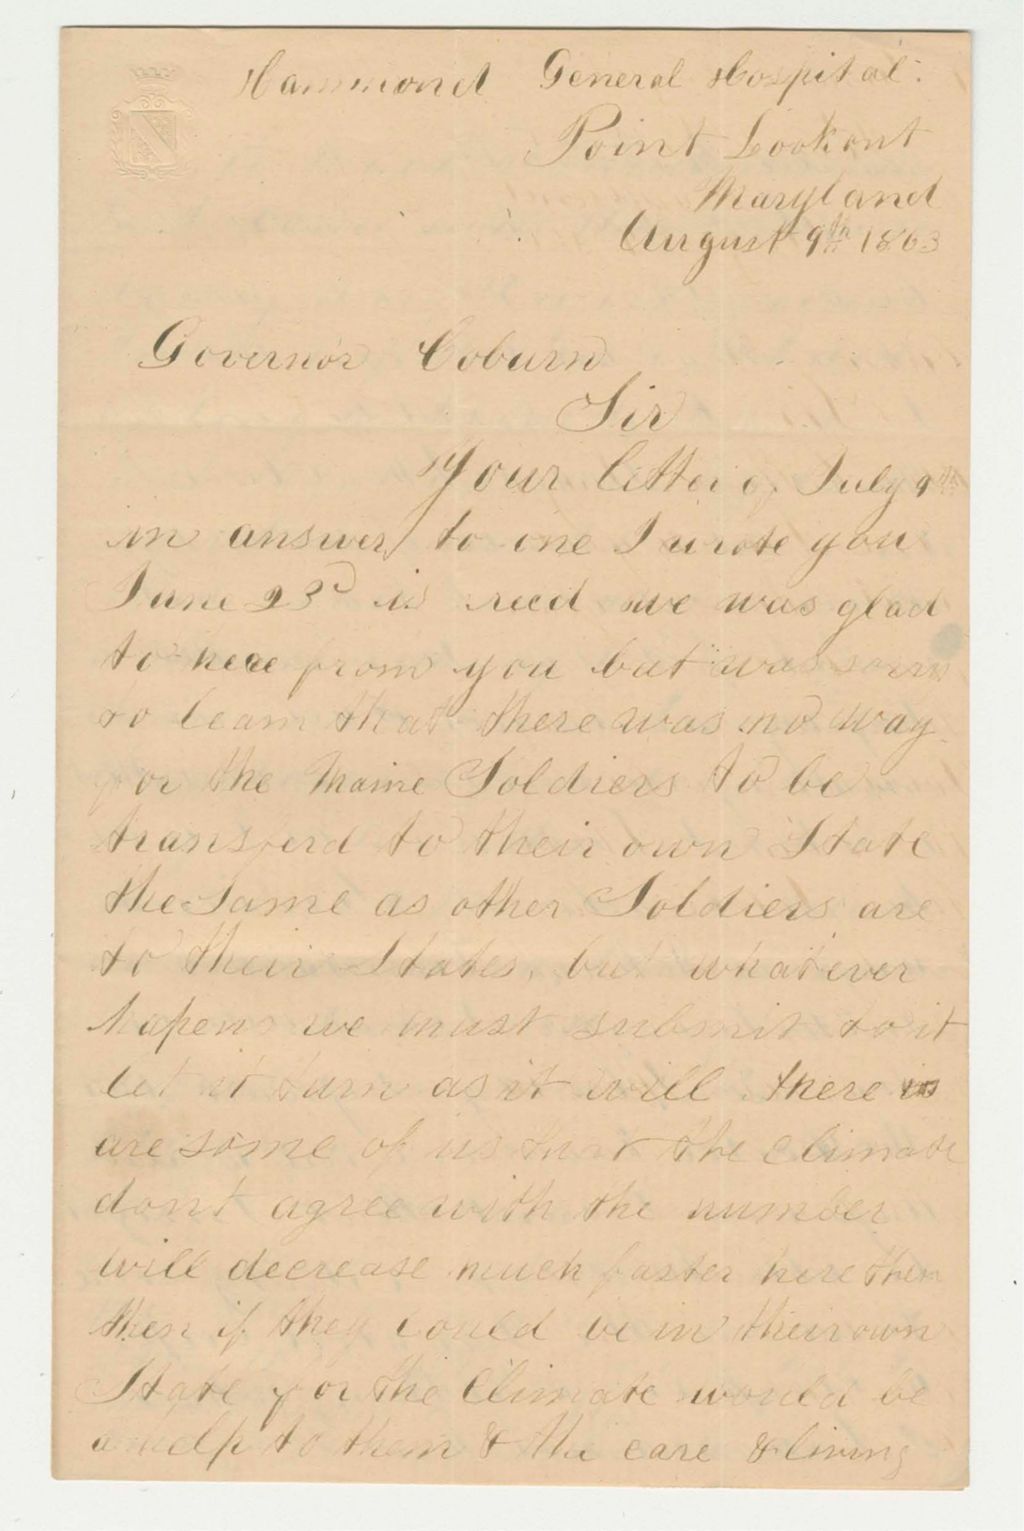 Hammond General Hospital.
Point Lookout
Maryland
August 9th 1863
Governor Coburn
Sir
Your letter of July 9th
in answer to one I wrote you
June 23d is recd we was glad
to here from you but was sorry
to learn that there was no way
for the Maine Soldiers to be
transferd to their own State
the Same as other Soldiers are
to their States, but whatever
hapens we must submit to it
let it turn as it will there is
are some of us that the climate
dont agree with the number
will decrease much faster here then
then if they could be in their own
State for the Climate would be
a help to them & the care & living